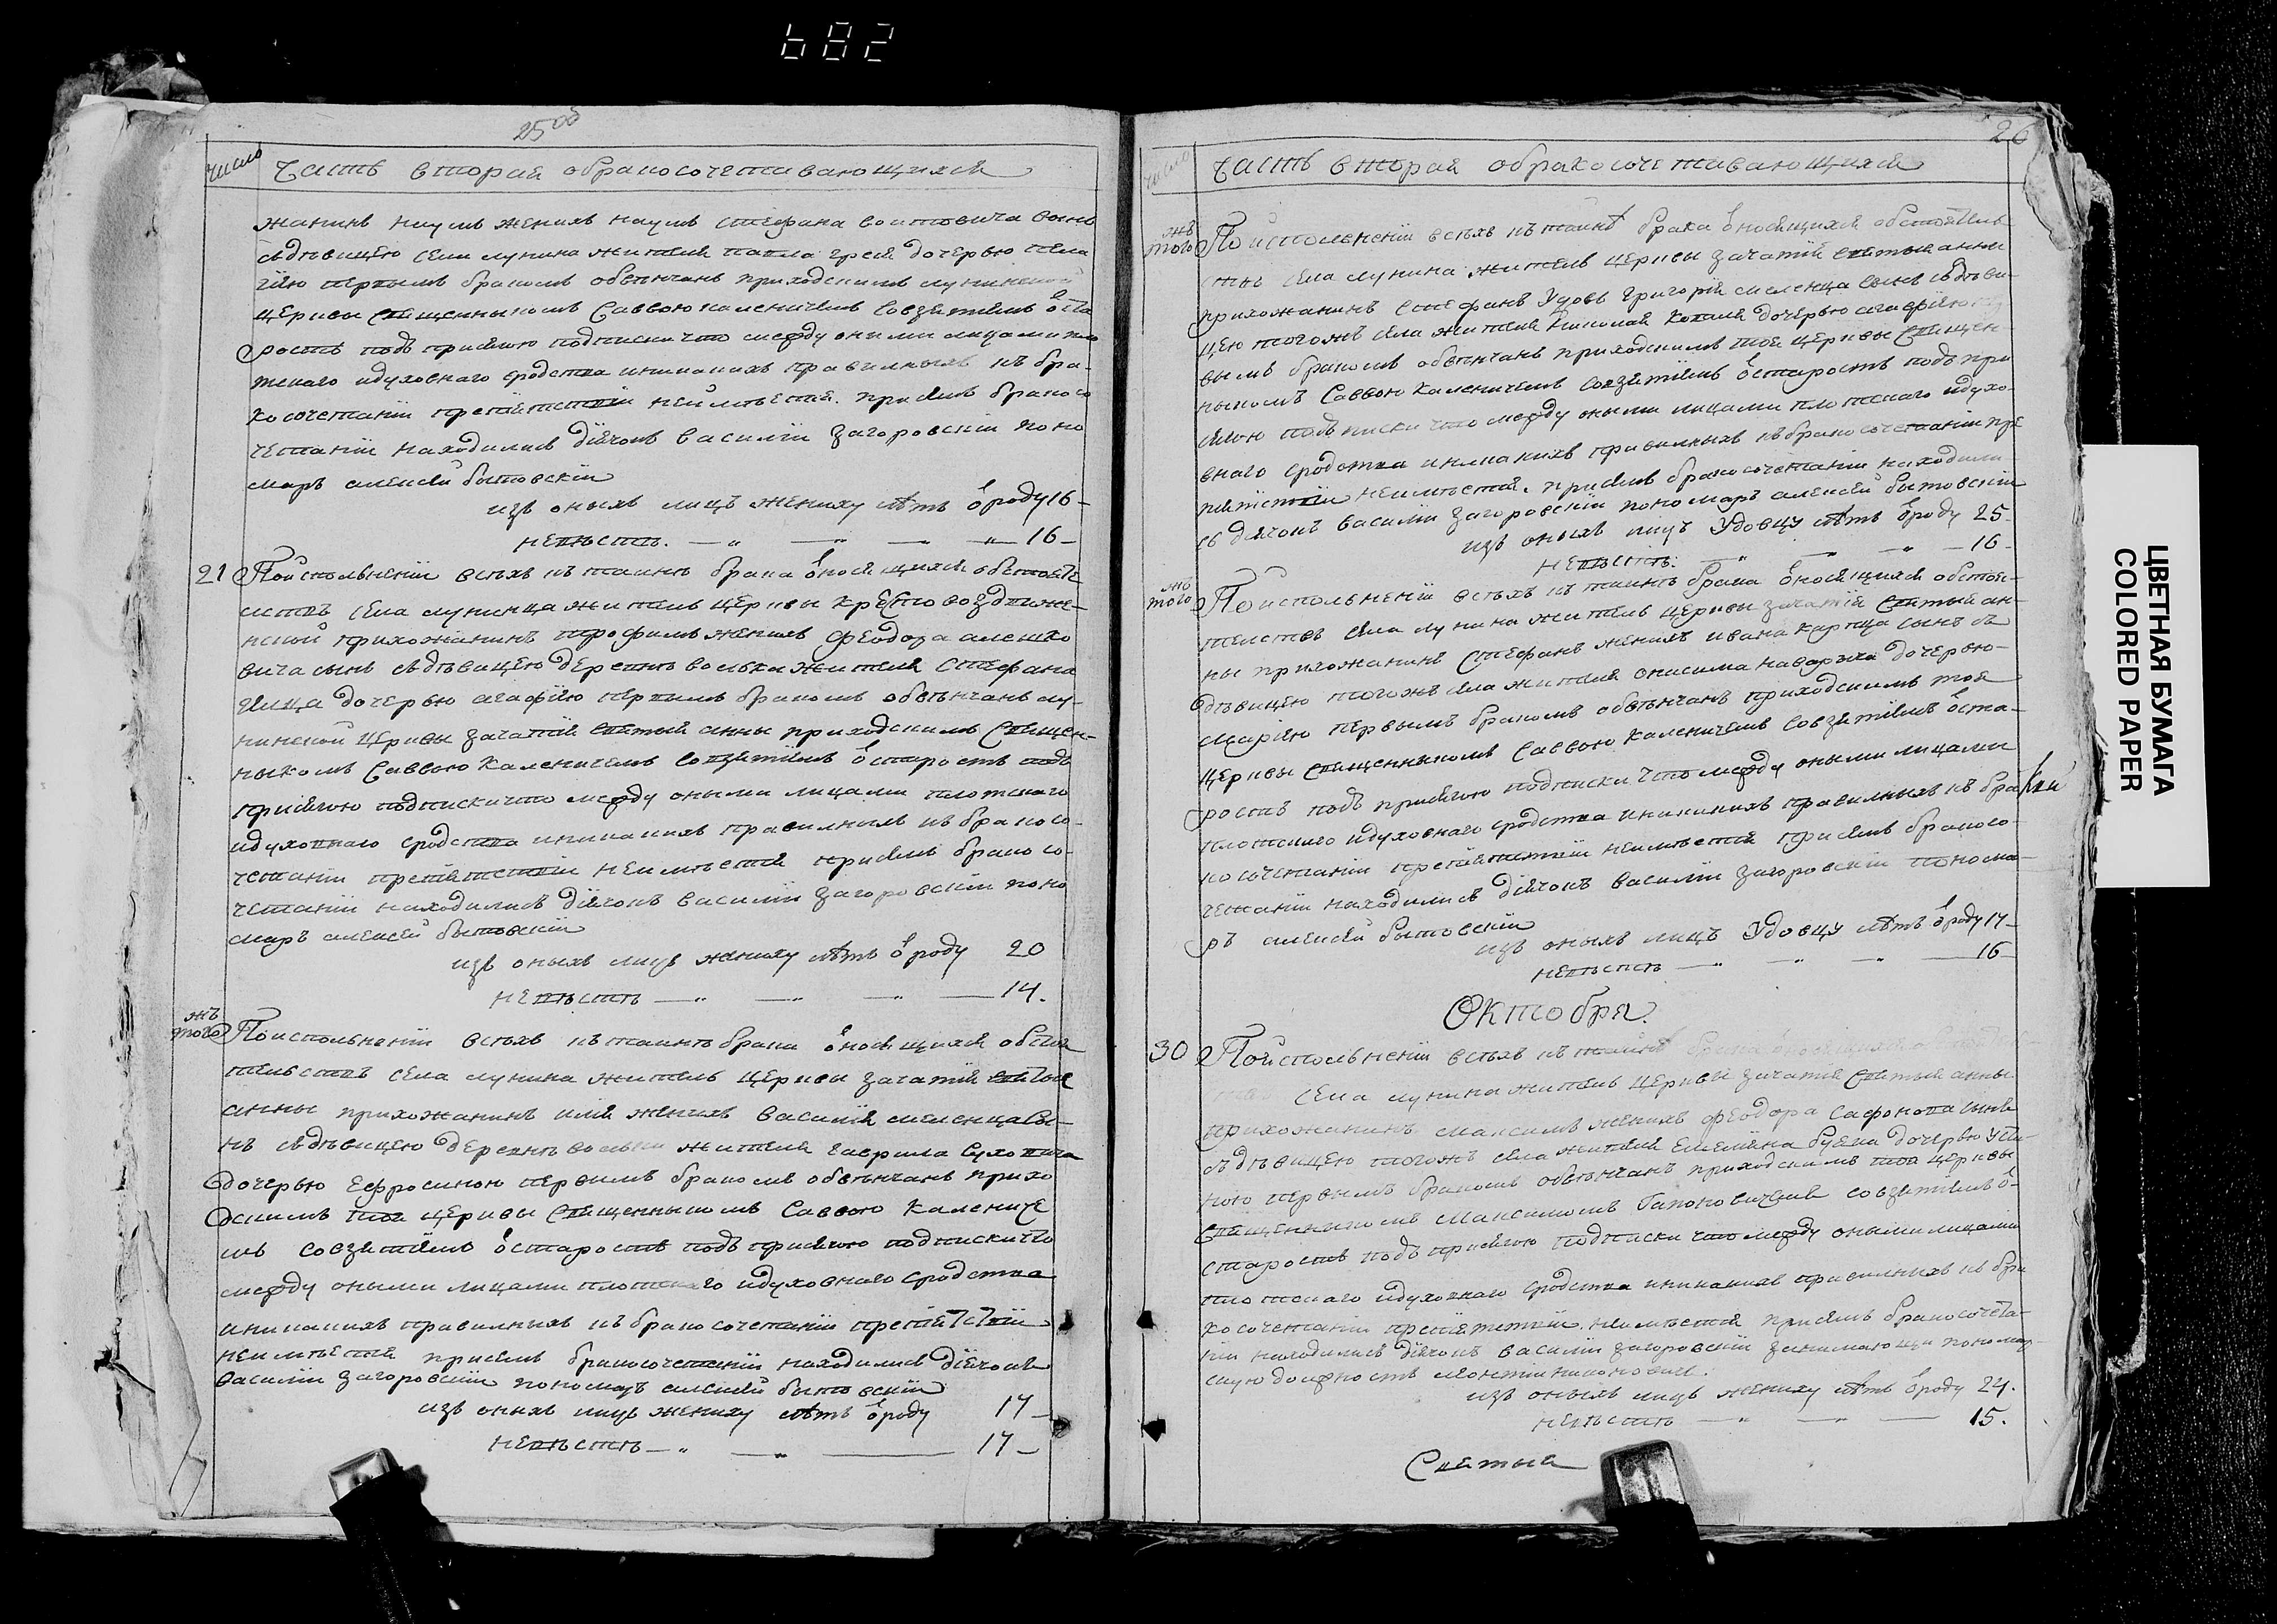 682
25 об
число
Часть вторая о бракосочетавающихся
жанинъ наумъ женихъ наумъ стефана воитовича сынъ
сѣдѣвицею села лунина жителя павла грея дочерью
гіею первымъ бракомъ обвѣнчанъ приходскимъ лунинской
церкви священникомъ Саввою каленичемъ совзятіемъ ѿста
ростъ подъ присягою подписки что между оными лицами пло
тскаго идуховнаго сродства иникакихъ правилныхъ къ бра-
ко сочетанію препятствій неимѣется. присемъ бракосо
четаніи находились діячокъ василіи загоровскіи поно
маръ алексеи бытовскіи
изъ оныхъ лицъ жениху лѣтъ ѿроду 16-
невѣстѣ. — „ — „ — „ 16-
21 По исполненіи всѣхъ къ таинѣ брака ѿносящихся обстояте
лствъ села лунинца житель церкви крестовоздвиже-
нской прихожанинъ трофимъ женихъ феодора алешко
вича сынъ сѣдѣвицею деревнѣ вольки жителя Стефана
дочерью агафіею первимъ бракомъ обвѣнчанъ лу-
нинской церкви зачатія святыя анны приходскимъ священ-
никомъ Саввою Каленичемъ совзятіемъ ѿстаростъ подъ
присягою подписки что между оными лицами плотскаго
идуховнаго сродства иникакихъ правилныхъ къ бракосо-
четанію препятствій неимѣется присемъ бракосо-
четаніи находились діячокъ василіи загоровскіи поно
маръ алексеи бытовскіи
изъ оныхъ лицъ жениху лѣтъ ѿроду 20
невѣстѣ — „ — „ — „ — 14.
тогожъ По исполненіи всѣхъ къ таинѣ брака ѿносящихся обстоя
телствъ села лунина житель церкви зачатія святыя
анны прихожанинъ имя женихъ василій меленца сы-
нъ сѣдѣвицею деревнѣ вольки жителя гаврила
дочерью Ефросиною первимъ бракомъ обвѣнчанъ прихо
дскимъ тоя церкви священникомъ Саввою Каленичe
мъ совзятіемъ ѿстаростъ подъ присягою подписки что
между оными лицами плотскаго идуховнаго сродства
иникакихъ правилныхъ къ бракосочетанію препятствій
неимѣется присемъ бракосочетаніи находились діячокъ
василіи загоровскіи пономаръ алексеи бытовскіи
изъ оныхъ лицъ жениху лѣтъ ѿроду 17-
невѣстѣ — „ — „ — 17-
26
число
Часть вторая о бракосочетавающихся
тогожъ По исполненіи всѣхъ къ таинѣ брака ѿносящихся обстоятель
ствъ села лунина житель церкви зачатія святыя анны
прихожанинъ стефанъ Удовъ григорія меленца сынъ сѣдѣви-
цею тогожъ села жителя николая дочерью агафіею
вымъ бракомъ обвѣнчанъ приходскимъ тоя церкви священ-
никомъ Саввою Каленичемъ совзятіемъ ѿстаростъ подъ при
сягою подписки что между оными лицами плотскаго идухо-
внаго сродства иникакихъ правилныхъ къ бракосочетанію пре
пятствій неимѣется. присемъ бракосочетаніи находили-
сь діячокъ василіи загоровскіи пономаръ алексеи бытовскіи
изъ оныхъ лицъ Удовцу лѣтъ ѿроду 25
невѣстѣ. — „ — „ — 16-
тогожъ По исполненіи всѣхъ къ таинѣ брака ѿносящихся обстоя-
телствъ села лунина житель церкви зачатія святыя ан-
ны прихожанинъ Стефанъ женихъ ивана сынъ съ
дѣвицею тогожъ села жителя онисима дочерью
маріею первымъ бракомъ обвѣнчанъ приходскимъ тоя
церкви священникомъ Саввою Каленичемъ совзятіемъ ѿста-
ростъ подъ присягою подписки что между оными лицами
плотскаго идуховнаго сродства иникакихъ правилныхъ къ бра
косочетанію препятствій неимѣется присемъ бракосо-
четаніи находились діячокъ василіи загоровскіи понома-
ръ алексеи бытовскіи
изъ оныхъ лицъ Удовцу лѣтъ ѿроду 17-
невѣстѣ — „ — „ — „ 16
Октобря.
30 По исполненіи всѣхъ къ таинѣ брака ѿносящихся
села лунина житель церкви зачатія святыя анны
прихожанинъ максимъ женихъ феодора сафонова сынъ
сѣдѣвицею тогожъ села жителя Емеліяна дочерью Усти-
ною первымъ бракомъ обвѣнчанъ приходскимъ тоя церкви
священникомъ Максимомъ Гапоновичемъ совзятіемъ ѿ-
старостъ подъ присягою подписки что между оными лицами
плотскаго идуховнаго сродства иникакихъ правилныхъ къ бра
косочетанію препятствій неимѣется присемъ бракосочета-
ніи находились діячокъ василіи загоровскіи занимающи понома-
скую должность
изъ оныхъ лицъ жениху лѣтъ ѿроду 24.
невѣстѣ — „ — „ — 15.
Святыя
ЦВЕТНАЯ БУМАГА
COLORED PAPER